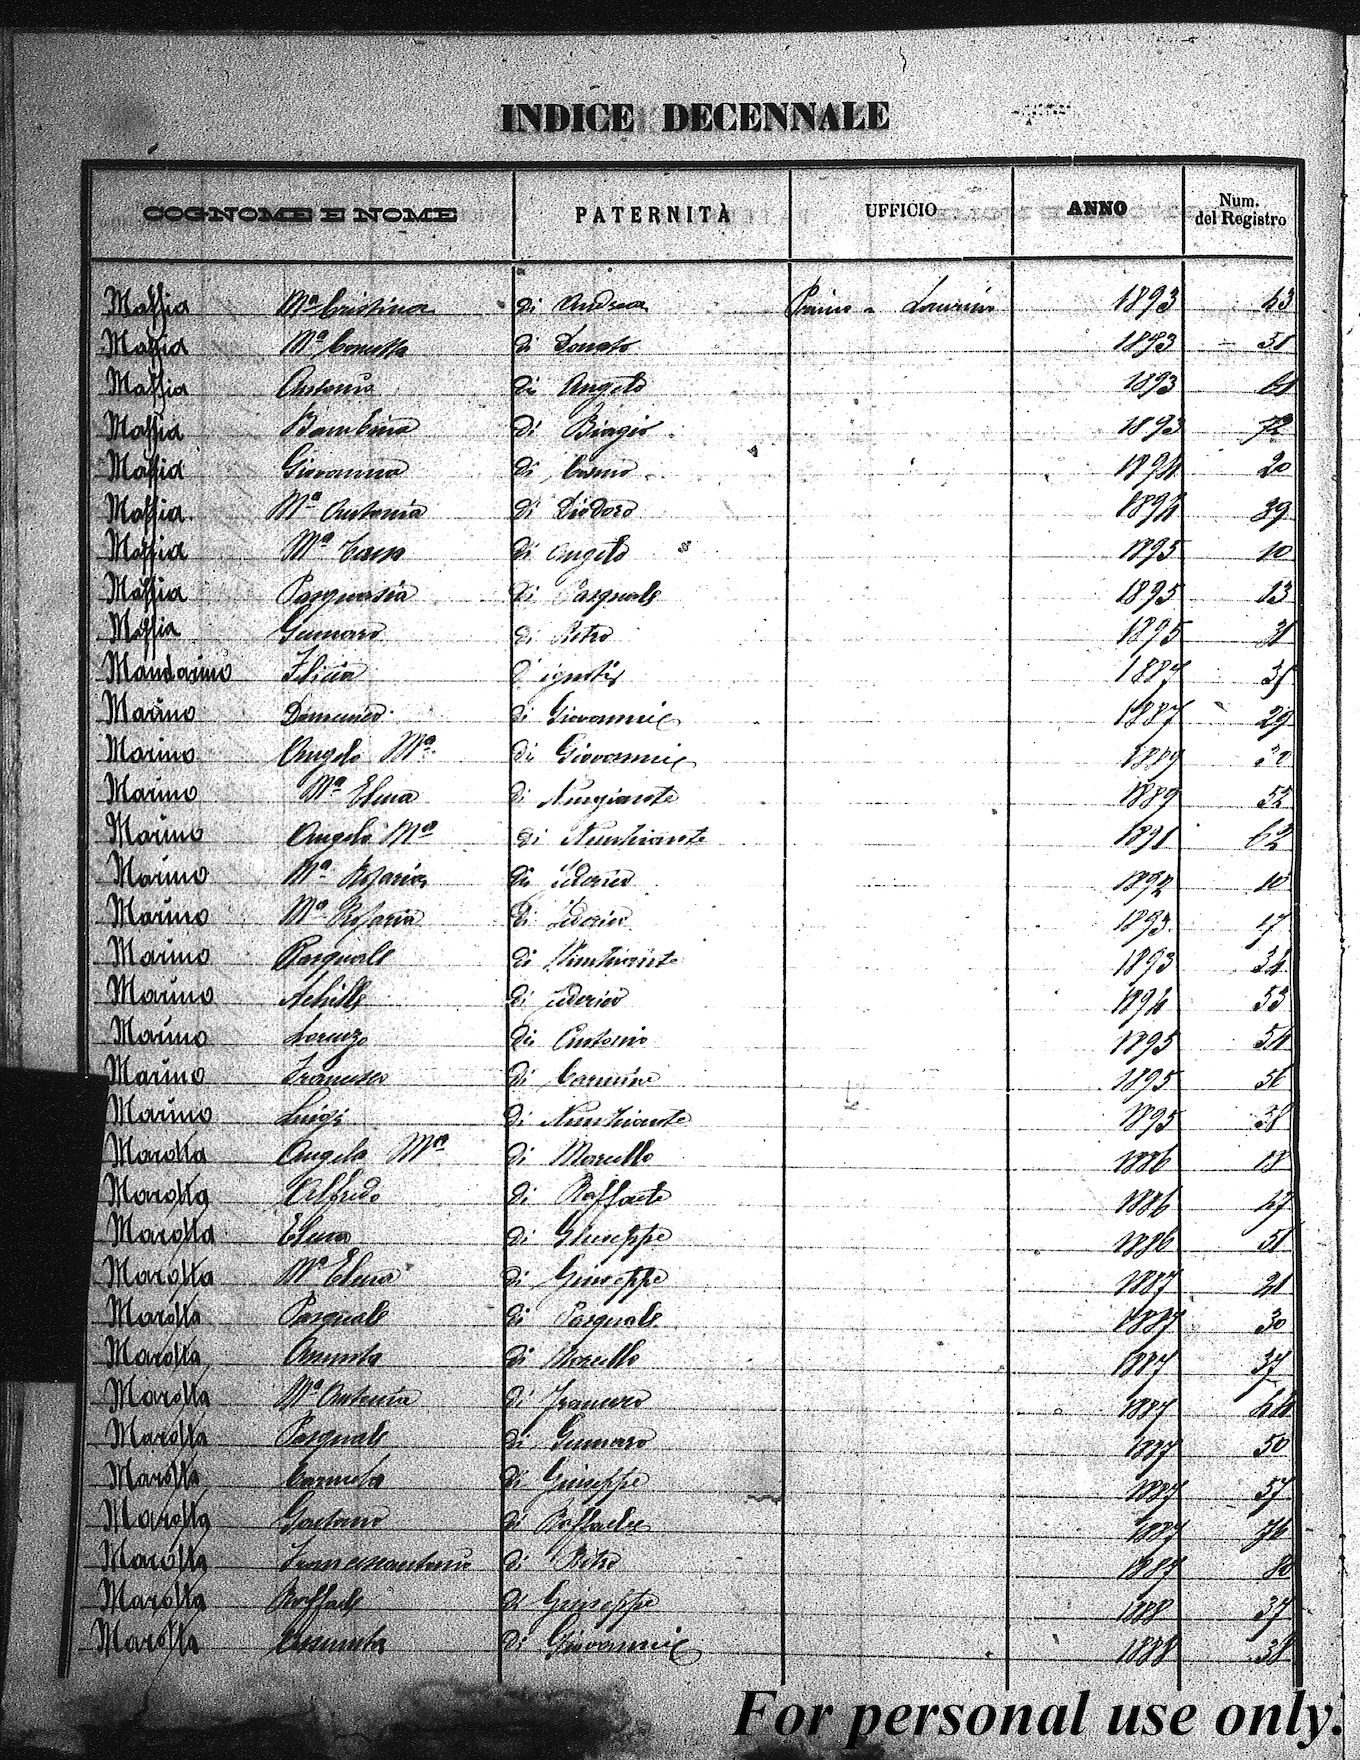 INDICE DECENNALE
COGNOME E NOME PATERNITÀ UFFICIO ANNO Num. del Registro
Maffia Mª Cristina di Andrea Laurino 1893 43
Maffia Mª Concetta di Donato 1893 51
Maffia Antonio di Angelo 1893 61
Maffia Bambina di Biagio 1893 72
Maffia Giovanna di Cosmo 1894 20
Maffia Mª Antonia di Diodoro 1894 39
Maffia Mª di Angelo 1895 10
Maffia Pasquasia di Pasquale 1895 13
Maffia Gennaro di Pietro 1895 31
Mandarino Felicia d'ignoti 1887 35
Marino Domenico di Giovanni 1887 29
Marino Angelo Mª di Giovanni 1889
Marino Mª Elena di Nunziante 1889 52
Marino Angelo Mª di Nunziante 1891 62
Marino Mª Rosaria di Federico 1892 10
Marino Mª Rosaria di Federico 1893 17
Marino Pasquale di Nunziante 1893 34
Marino Achille di Federico 1894 53
Marino Lorenzo di Antonio 1895 54
Marino Francesco di Carmine 1895 56
Marino Luigi di Nunziante 1895 38
Marotta Angela Mª di Marcello 1886 18
Marotta Alfredo di Raffaele 1886 47
Marotta Elena di Giuseppe 1886 51
Marotta Mª Elena di Giuseppe 1887 21
Marotta Pasquale di Pasquale 1887 30
Marotta Assunta di Marcello 1887 37
Marotta Mª Antonia di Francesco 1887 44
Marotta Pasquale di Gennaro 1887 50
Marotta Carmela di Giuseppe 1887 57
Marotta Gaetano di Raffaele 1887 76
Marotta Francescantonio di Pietro 1887 80
Marotta Raffaele di Giuseppe 1888 37
Marotta Assunta di Giovanni 1888 38
For personal use only.